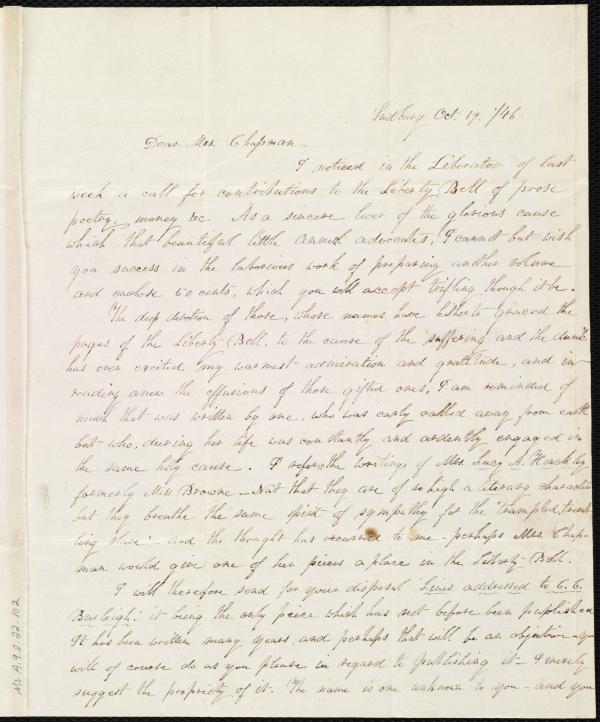 Sudbury Oct. 19. /46
Dear Mrs. Chapman -
I noticed in the Liberator of last
week a call for contributions to the Liberty Bell of prose
poetry, money &c. As a sincere lover of the glorious cause
which that beautiful little annual advocates, I cannot but wish
you success in the laborious work of preparing another volume
and enclose 50 cents, which you will accept trifling though it be.
The deep devotion of those, whose names have hitherto graced the
pages of the Liberty Bell, to the cause of the suffering and the dumb
has ever excited my warmest admiration and gratitude, and in
reading anew the effusions of those gifted ones, I am reminded of
much that was written by one, who was early called away from earth
but who, during her life was constantly and ardently engaged in
the same holy cause. I refer to the writings of Mrs Lucy A. Hinckley
formerly Miss Browne - Not that they are of so high a literary character
but they breathe the same spirit of sympathy for the trampled, trem
ling slave - and the thought has occurred to me - perhaps Mrs. Chap-
man would give one of her pieces a place in the Liberty Bell.
I will therefore send for your disposal 'Lines addressed to C. C.
Burleigh.' it being the only piece which has not before been published
It has been written many years, and perhaps that will be an objection - you
will of course do as you please in regard to publishing it - I merely
suggest the propriety of it. The name is one unknown to you - and you
Ms. A.9.2.22.102